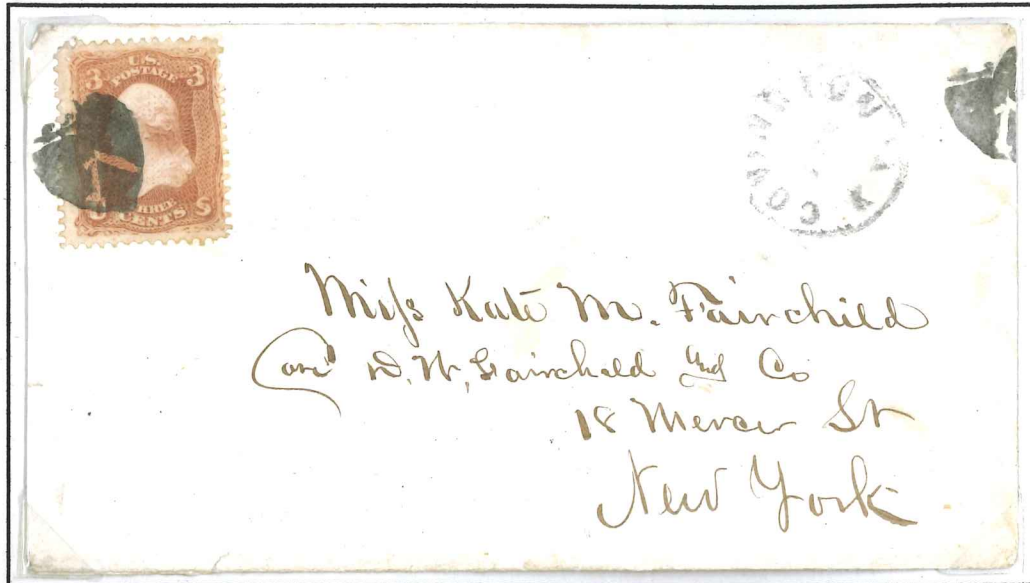 3 U.S. 3
POSTAGE
THREE
CENTS
Miss Kate M. Fairchild
Care D. W. Fairchild and Co
18 Mercer St
New York